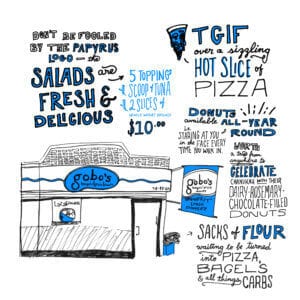 DON'T BE FOOLED
BY THE PAPYRUS
LOGO – the
SALADS are
FRESH &
DELICIOUS
5 TOPPING
1 SCOOP of TUNA
2 SLICES of
$10.00
TGIF
over a sizzling
HOT SLICE of
PIZZA
DONUTS
available ALL-YEAR
ROUND
i.e. STARING AT YOU
in the FACE EVERY
TIME YOU WALK IN.
CELEBRATE
CHANUKAH with THEIR
DAIRY-ROSEMARY-
CHOCOLATE-FILLED
DONUTS
gobo's
gobo's
SACKS of FLOUR
waiting to be turned
into PIZZA,
BAGELS
& all things CARBS